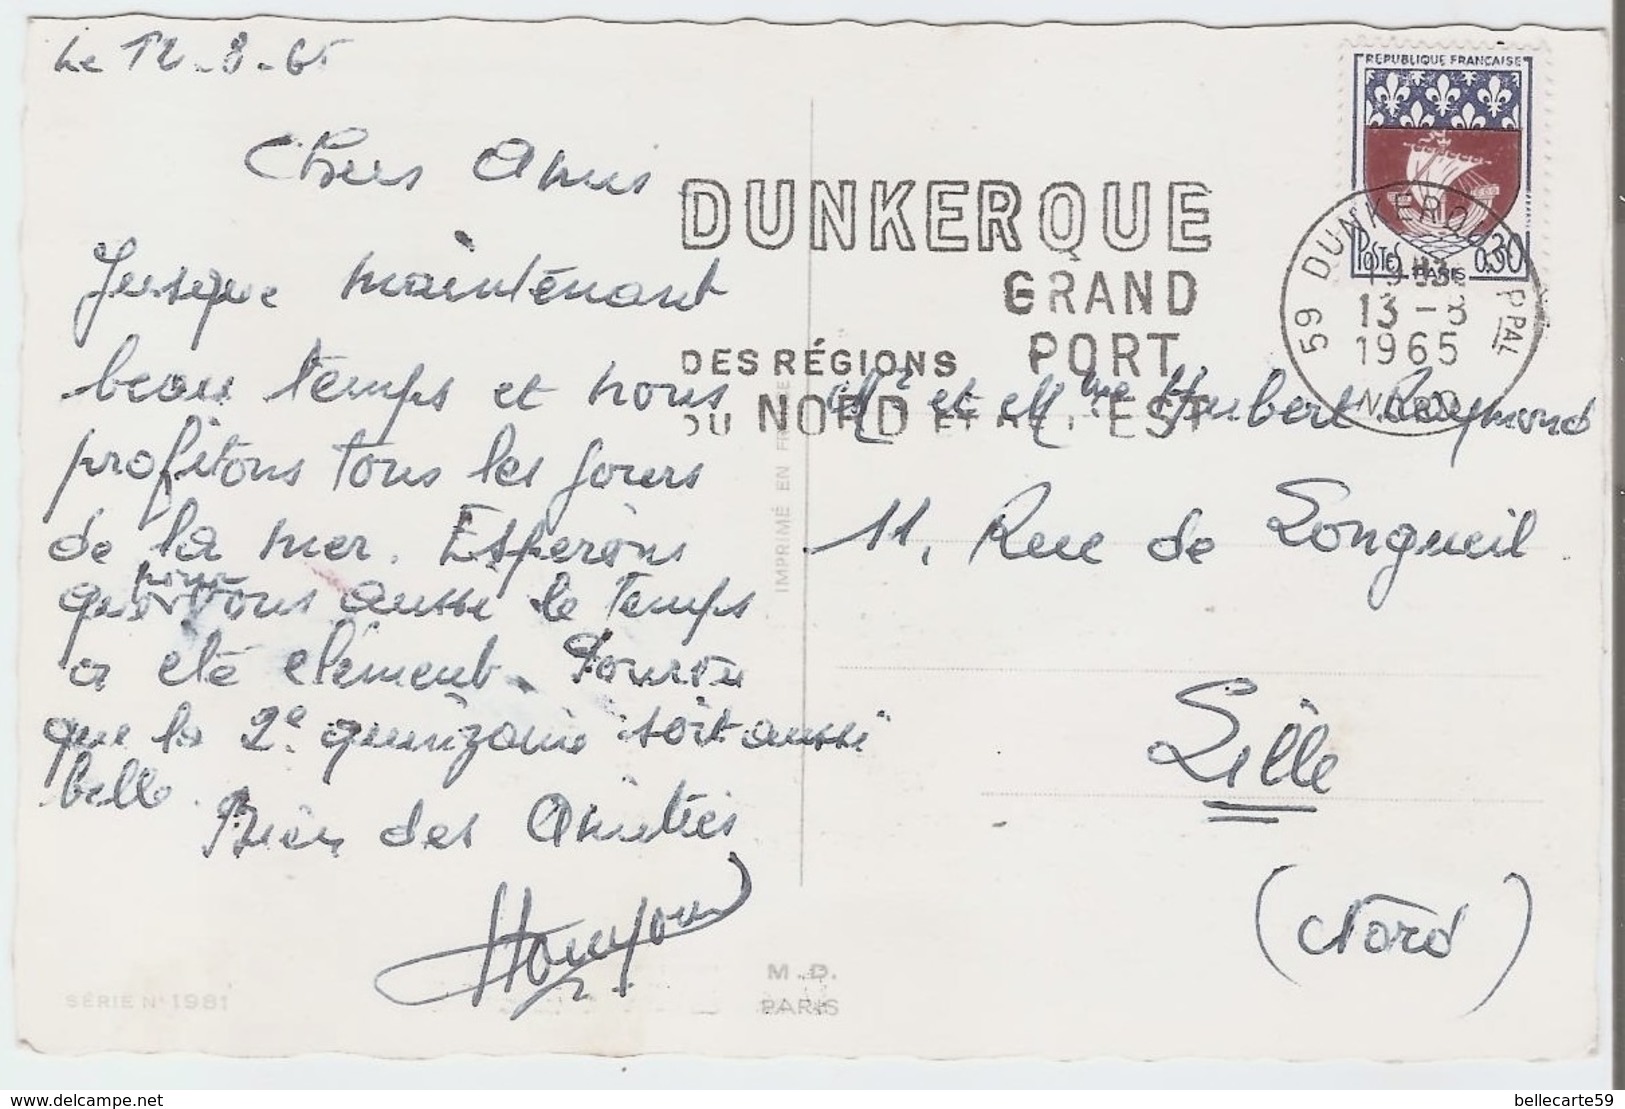 Le 12-8-65
Chers Amis
Jusque maintenant
beau temps et nous
profitons tous les jours
de la mer. Espérons
que pour vous aussi le temps
a été clément. Pourvu
que la 2e quinzaine soit aussi
belle.
Bien des Amitiés
SÉRIE N° 1981
M. D.
PARIS
IMPRIMÉ EN FRANCE
DUNKERQUE
GRAND
PORT
DES RÉGIONS
DU NORD ET DE L'EST
REPUBLIQUE FRANÇAISE
POSTES PARIS 0.30
59 DUNKERQUE PPAL
13-8
1965
NORD
Mr et Mme Hubert Raymond
11, Rue de Longueil
Lille
(Nord)
bellecarte59